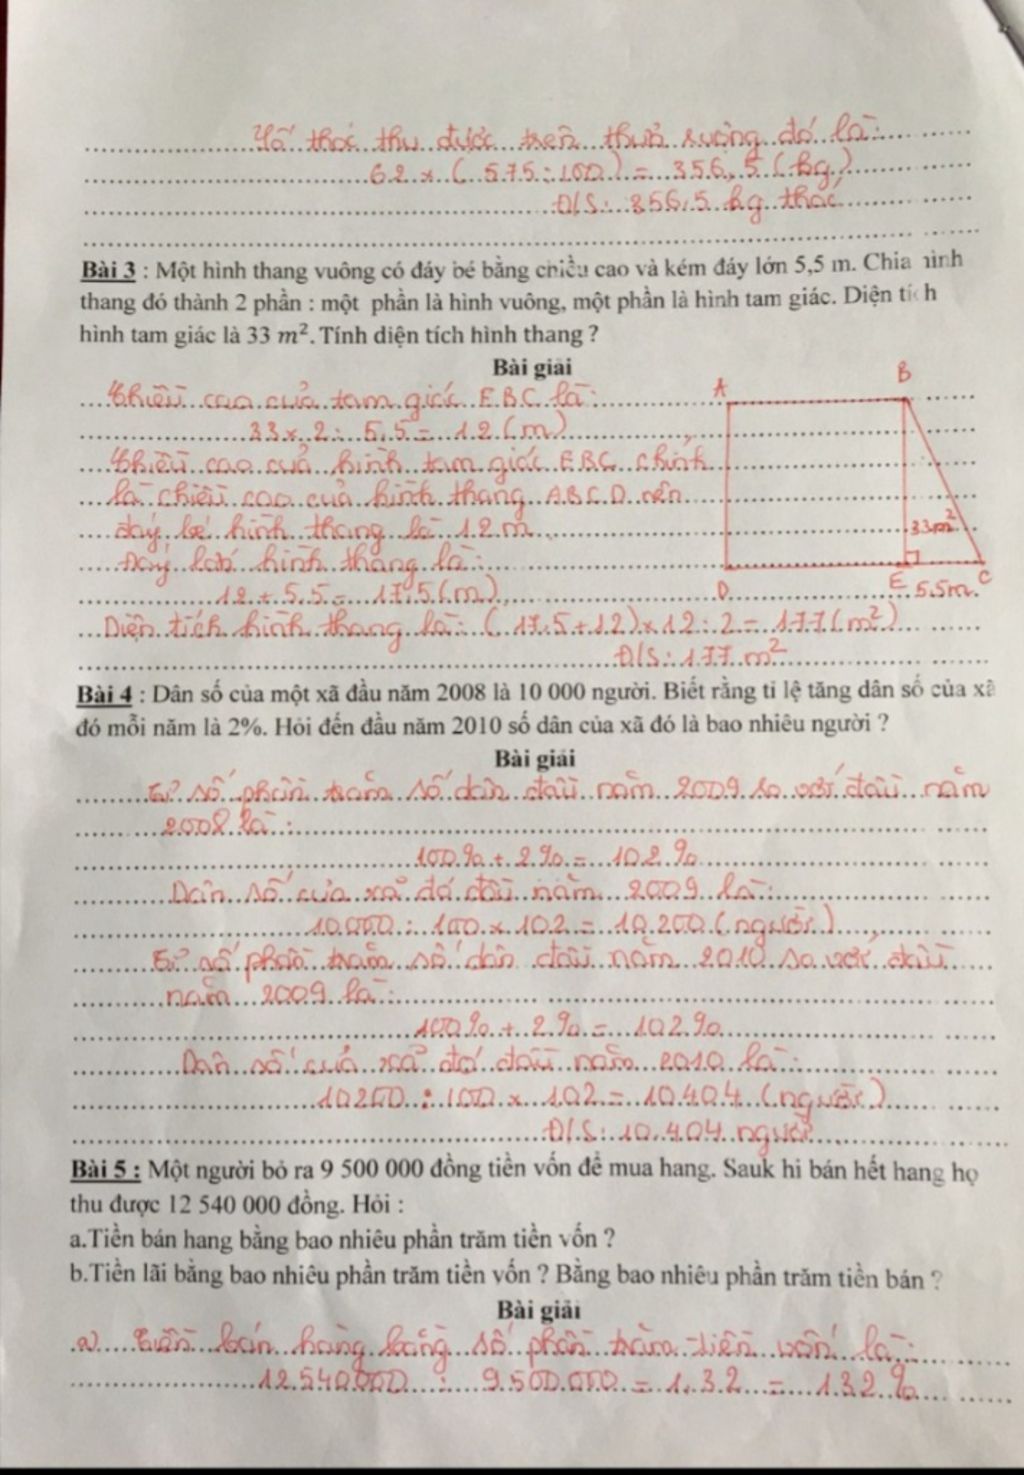 Số thóc thu được trên thửa ruộng đó là:
62 × (575 : 100) = 356,5 (kg)
Đ/S: 356,5 kg thóc
Bài 3 : Một hình thang vuông có đáy bé bằng chiều cao và kém đáy lớn 5,5 m. Chia hình
thang đó thành 2 phần : một phần là hình vuông, một phần là hình tam giác. Diện tích
hình tam giác là 33 m². Tính diện tích hình thang ?
Bài giải
Chiều cao của tam giác EBC là:
33 × 2 : 5,5 = 12 (m)
Chiều cao của hình tam giác EBC chính
là chiều cao của hình thang ABCD nên
đáy bé hình thang là 12 m
Đáy lớn hình thang là:
12 + 5,5 = 17,5 (m)
Diện tích hình thang là: (17,5 + 12) × 12 : 2 = 177 (m²)
Đ/S: 177 m²
A
B
33m²
D
E
5,5m
C
Bài 4 : Dân số của một xã đầu năm 2008 là 10 000 người. Biết rằng tỉ lệ tăng dân số của xã
đó mỗi năm là 2%. Hỏi đến đầu năm 2010 số dân của xã đó là bao nhiêu người ?
Bài giải
Tỉ số phần trăm số dân đầu năm 2009 so với đầu năm
2008 là :
100% + 2% = 102%
Dân số của xã đó đầu năm 2009 là:
10.000 : 100 × 102 = 10.200 (người)
Tỉ số phần trăm số dân đầu năm 2010 so với đầu
năm 2009 là:
100% + 2% = 102%
Dân số của xã đó đầu năm 2010 là:
10200 : 100 × 102 = 10.404 (người)
Đ/S: 10.404 người
Bài 5 : Một người bỏ ra 9 500 000 đồng tiền vốn để mua hang. Sauk hi bán hết hang họ
thu được 12 540 000 đồng. Hỏi :
a.Tiền bán hang bằng bao nhiêu phần trăm tiền vốn ?
b.Tiền lãi bằng bao nhiêu phần trăm tiền vốn ? Bằng bao nhiêu phần trăm tiền bán ?
Bài giải
a) Tiền bán hàng bằng số phần trăm tiền vốn là:
12.540.000 : 9.500.000 = 1,32 = 132%